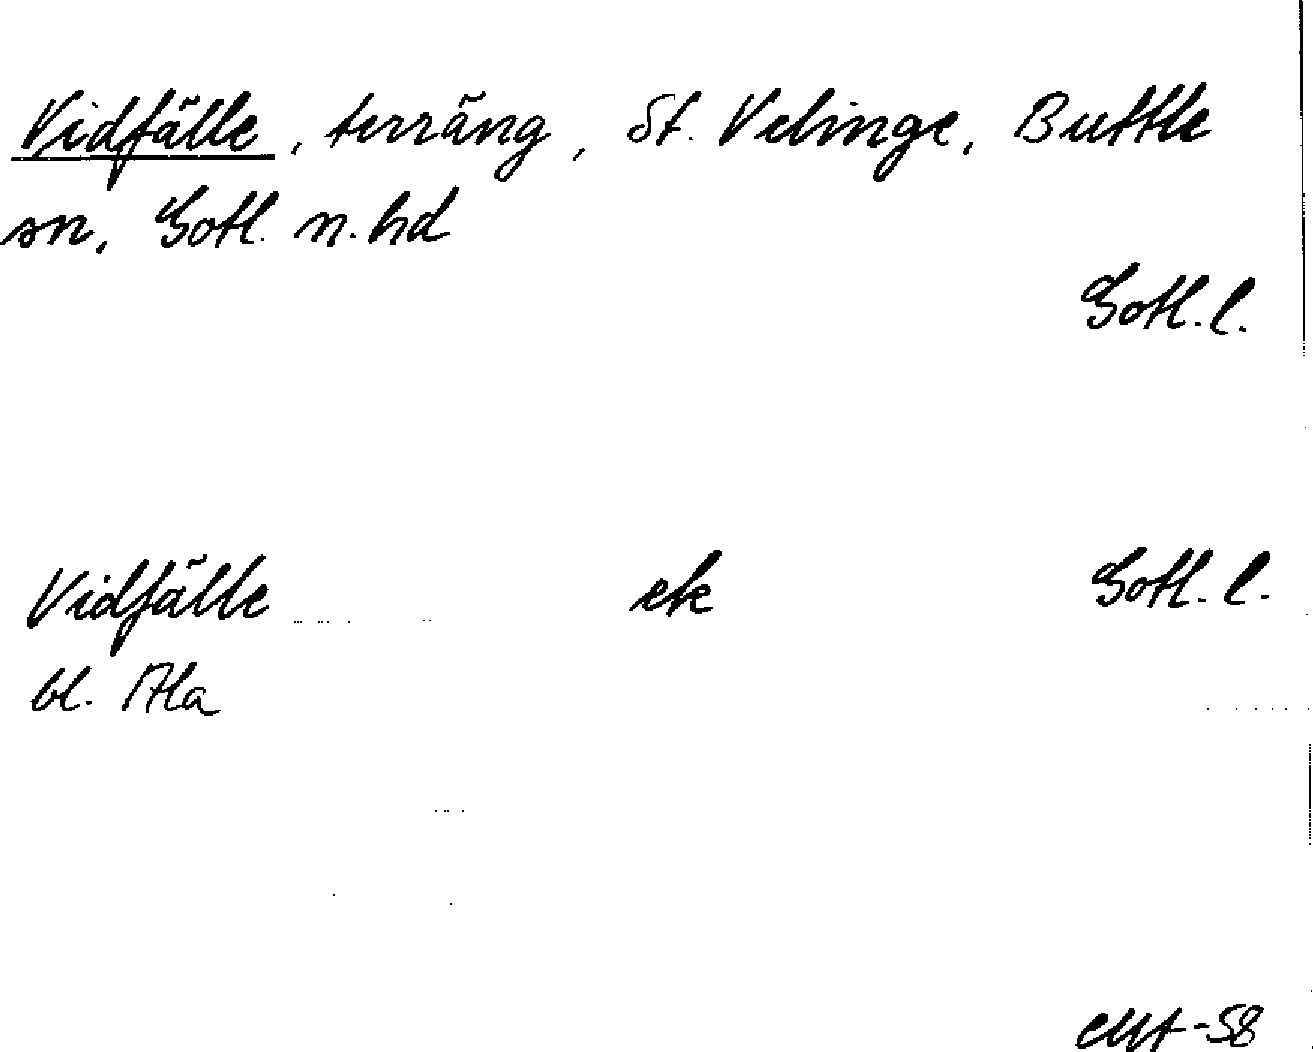 Vidfälle, terräng, St. Velinge, Buttle
sn, Gotl. n. hd
Gotl. l.
Vidfälle ek Gotl. l.
bl. Ala
-58